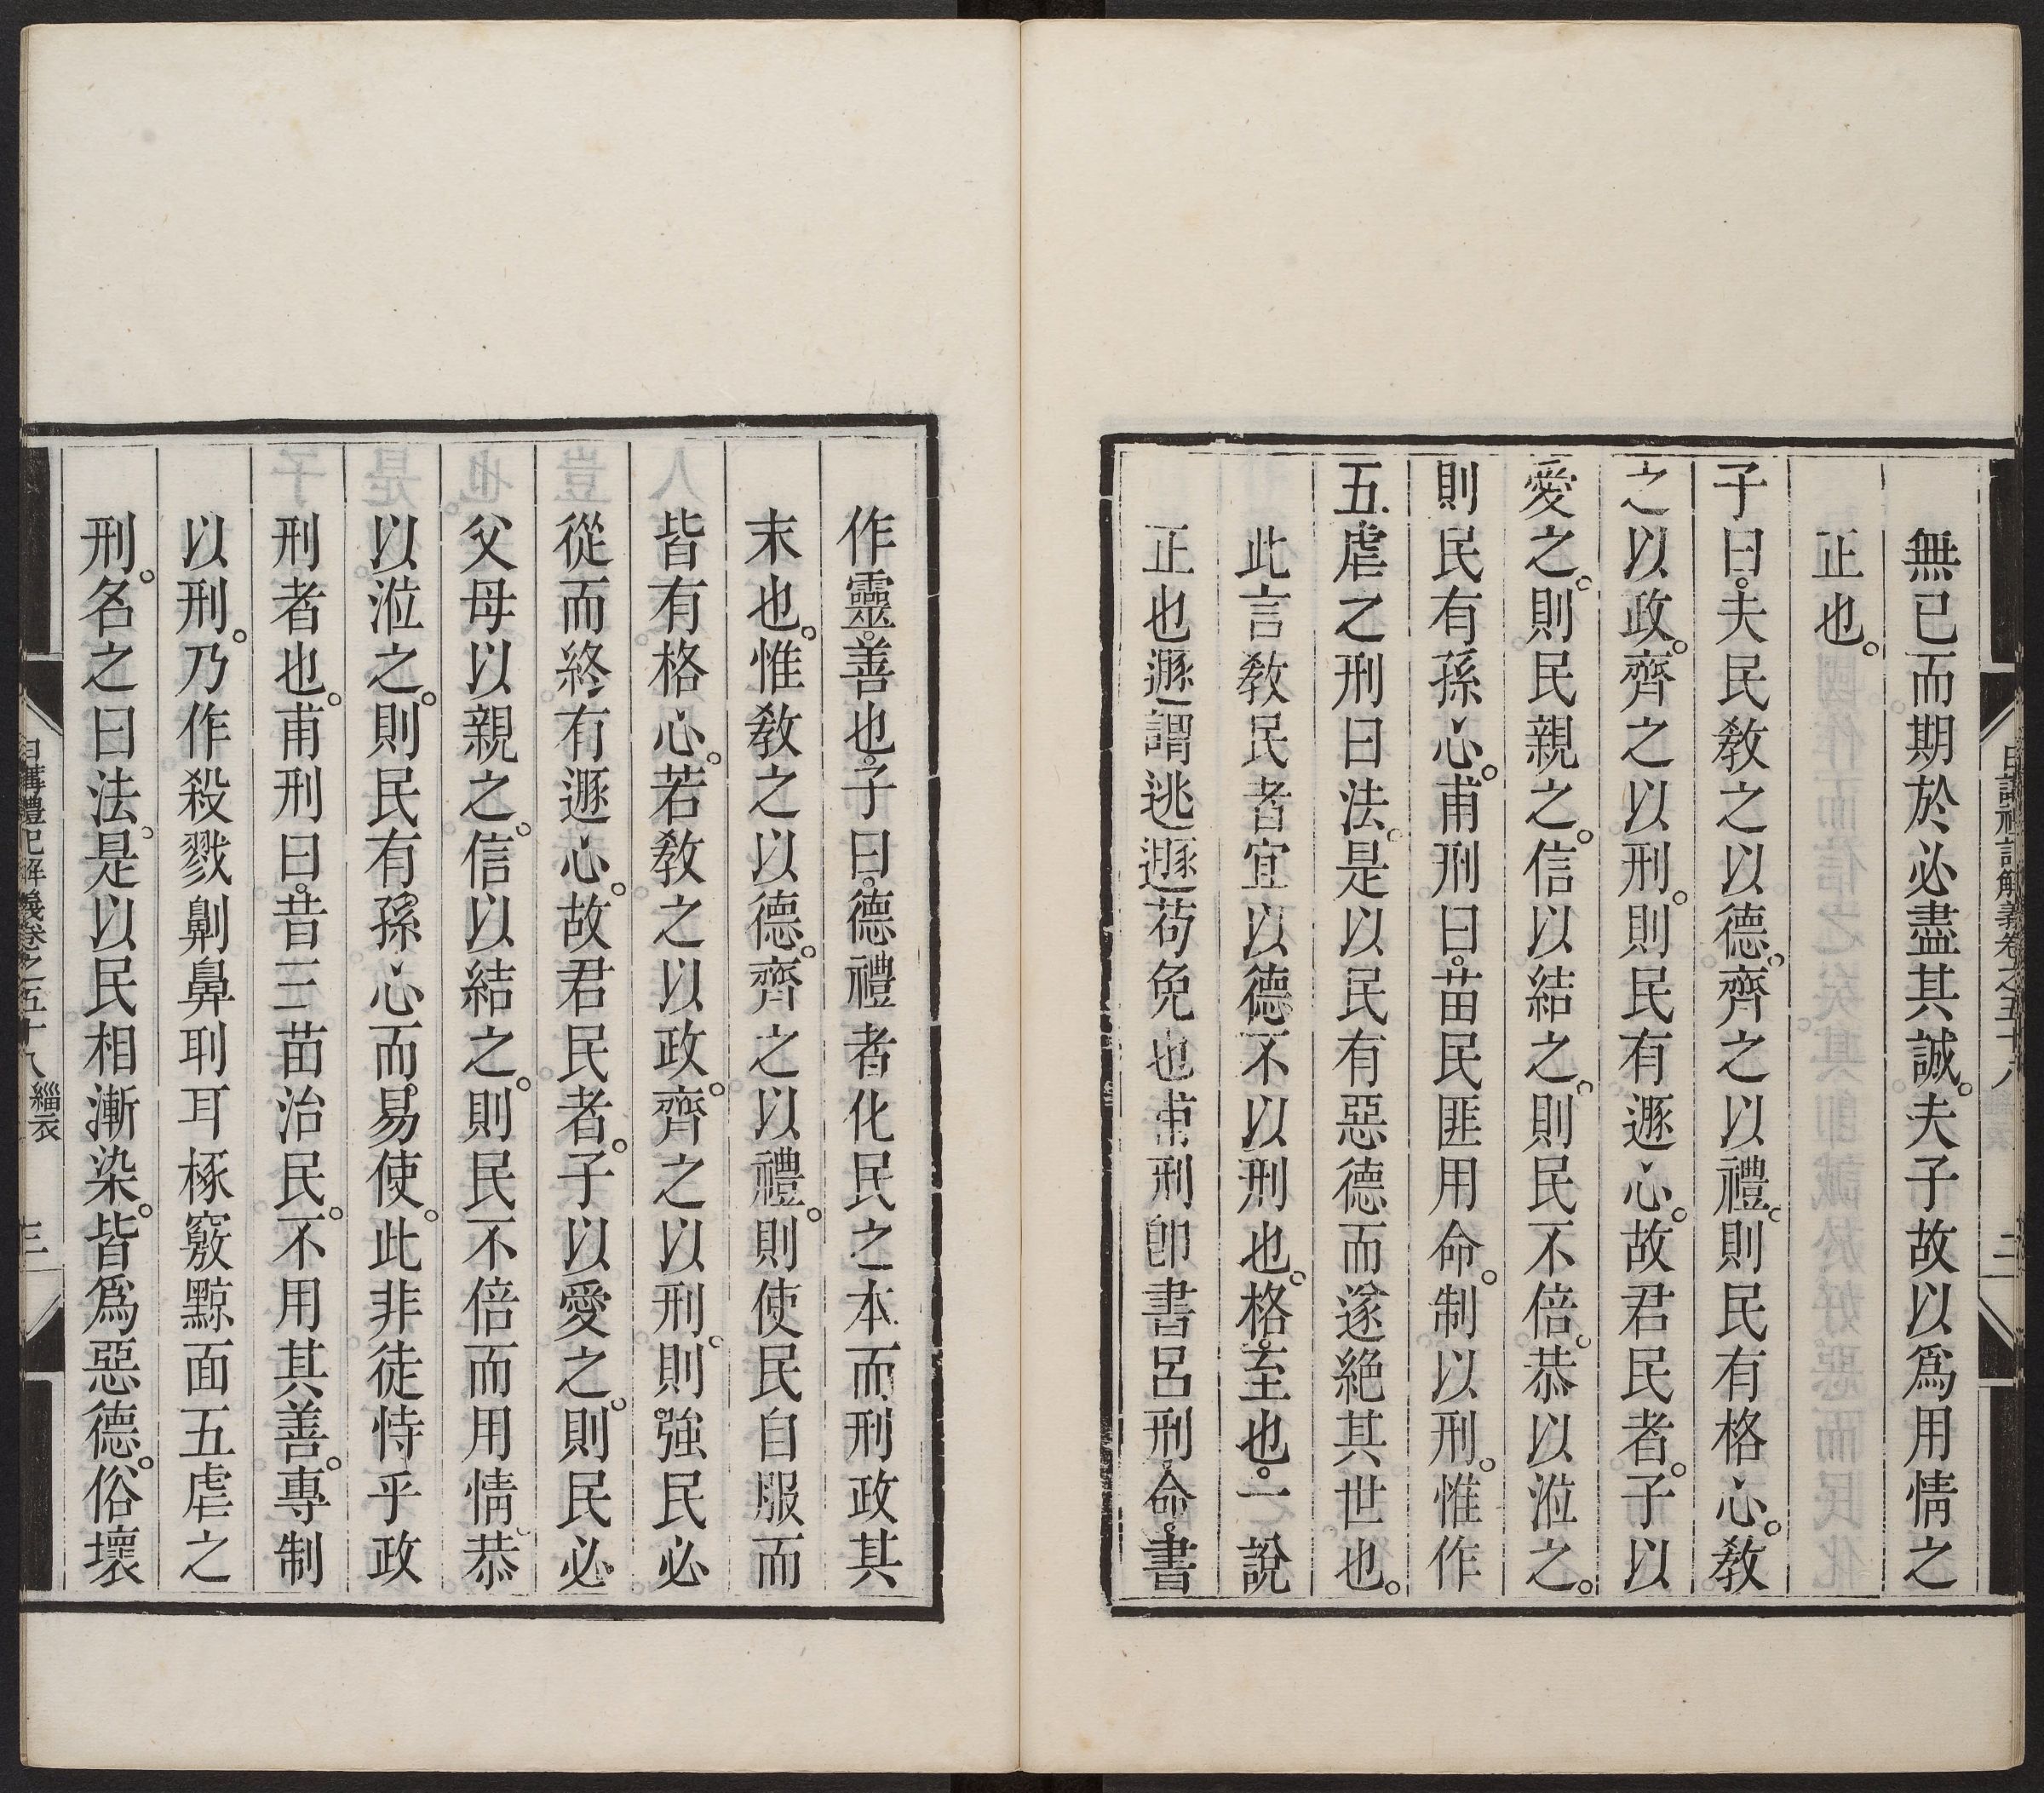 無已而期於必盡其誠。夫子故以爲用情之
正也。
子曰。夫民敎之以德。齊之以禮。則民有格心。敎
之以政。齊之以刑。則民有遯心。故君民者。子以
愛之。則民親之。信以結之。則民不倍。恭以涖之。
則民有孫心。甫刑曰。苗民匪用命。制以刑。惟作
五虐之刑曰法。是以民有惡德而遂絕其世也。
此言敎民者宜以德不以刑也。格。至也。一說
正也遯謂逃遯苟免也甫刑卽書呂刑。命。書
日講禮記解義卷之五十八 二
作靈。善也。子曰。德禮者化民之本而刑政其
末也。惟敎之以德。齊之以禮。則使民自服而
皆有格心。若敎之以政。齊之以刑。則強民必
從而終有遯心。故君民者。子以愛之。則民必
父母以親之。信以結之。則民不倍而用情恭
以涖之。則民有孫心而易使。此非徒恃乎政
刑者也。甫刑曰。昔三苗治民。不用其善。專制
以刑。乃作殺戮劓鼻刵耳椓竅黥面五虐之
刑。名之曰法。是以民相漸染。皆爲惡德。俗壞
日講禮記解義卷之五十八 緇衣 三